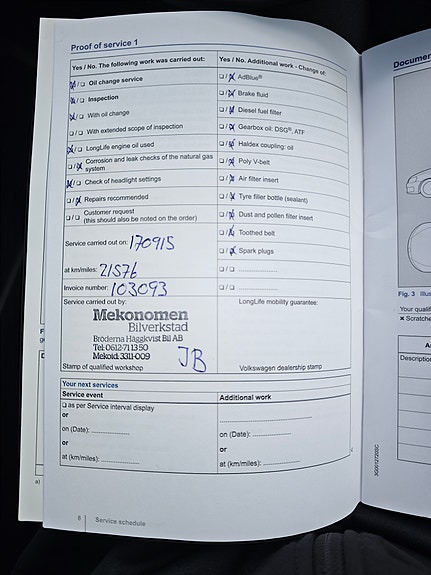 Proof of service 1
Yes / No. The following work was carried out:
Oil change service
Inspection
With oil change
With extended scope of inspection
LongLife engine oil used
Corrosion and leak checks of the natural gas
system
Check of headlight settings
Repairs recommended
Customer request
(this should also be noted on the order)
Service carried out on: 170915
at km/miles: 21576
Invoice number: 103093
Service carried out by:
Mekonomen
Bilverkstad
Bröderna Häggkvist Bil AB
Tel: 0612-71 13 50
Mekoid: 3311-009
JB
Stamp of qualified workshop
Yes / No. Additional work - Change of:
AdBlue®
Brake fluid
Diesel fuel filter
Gearbox oil: DSG®, ATF
Haldex coupling: oil
Poly V-belt
Air filter insert
Tyre filler bottle (sealant)
Dust and pollen filter insert
Toothed belt
Spark plugs
LongLife mobility guarantee:
Volkswagen dealership stamp
Your next services
Service event
as per Service interval display
or
on (Date):
or
at (km/miles):
Additional work
on (Date):
or
at (km/miles):
8 | Service schedule
Documen
Fig. 3 Illus
Your qualif
× Scratche
Description